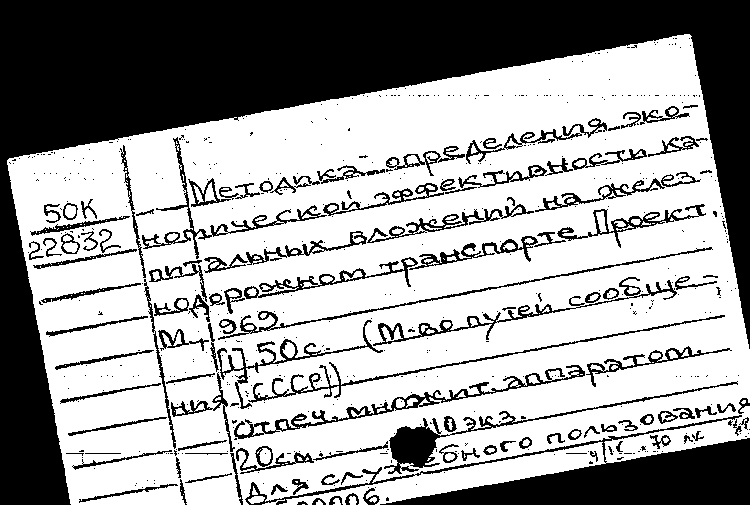 50К
22832
Методика определения эко-
номической эффективности ка-
питальных вложений на желез-
нодорожном транспорте. Проект.
М., 969.
[1], 50 с. (М-во путей сообще-
ния [СССР]).
Отпеч. множит. аппаратом.
20 см. 110 экз.
Для служебного пользования